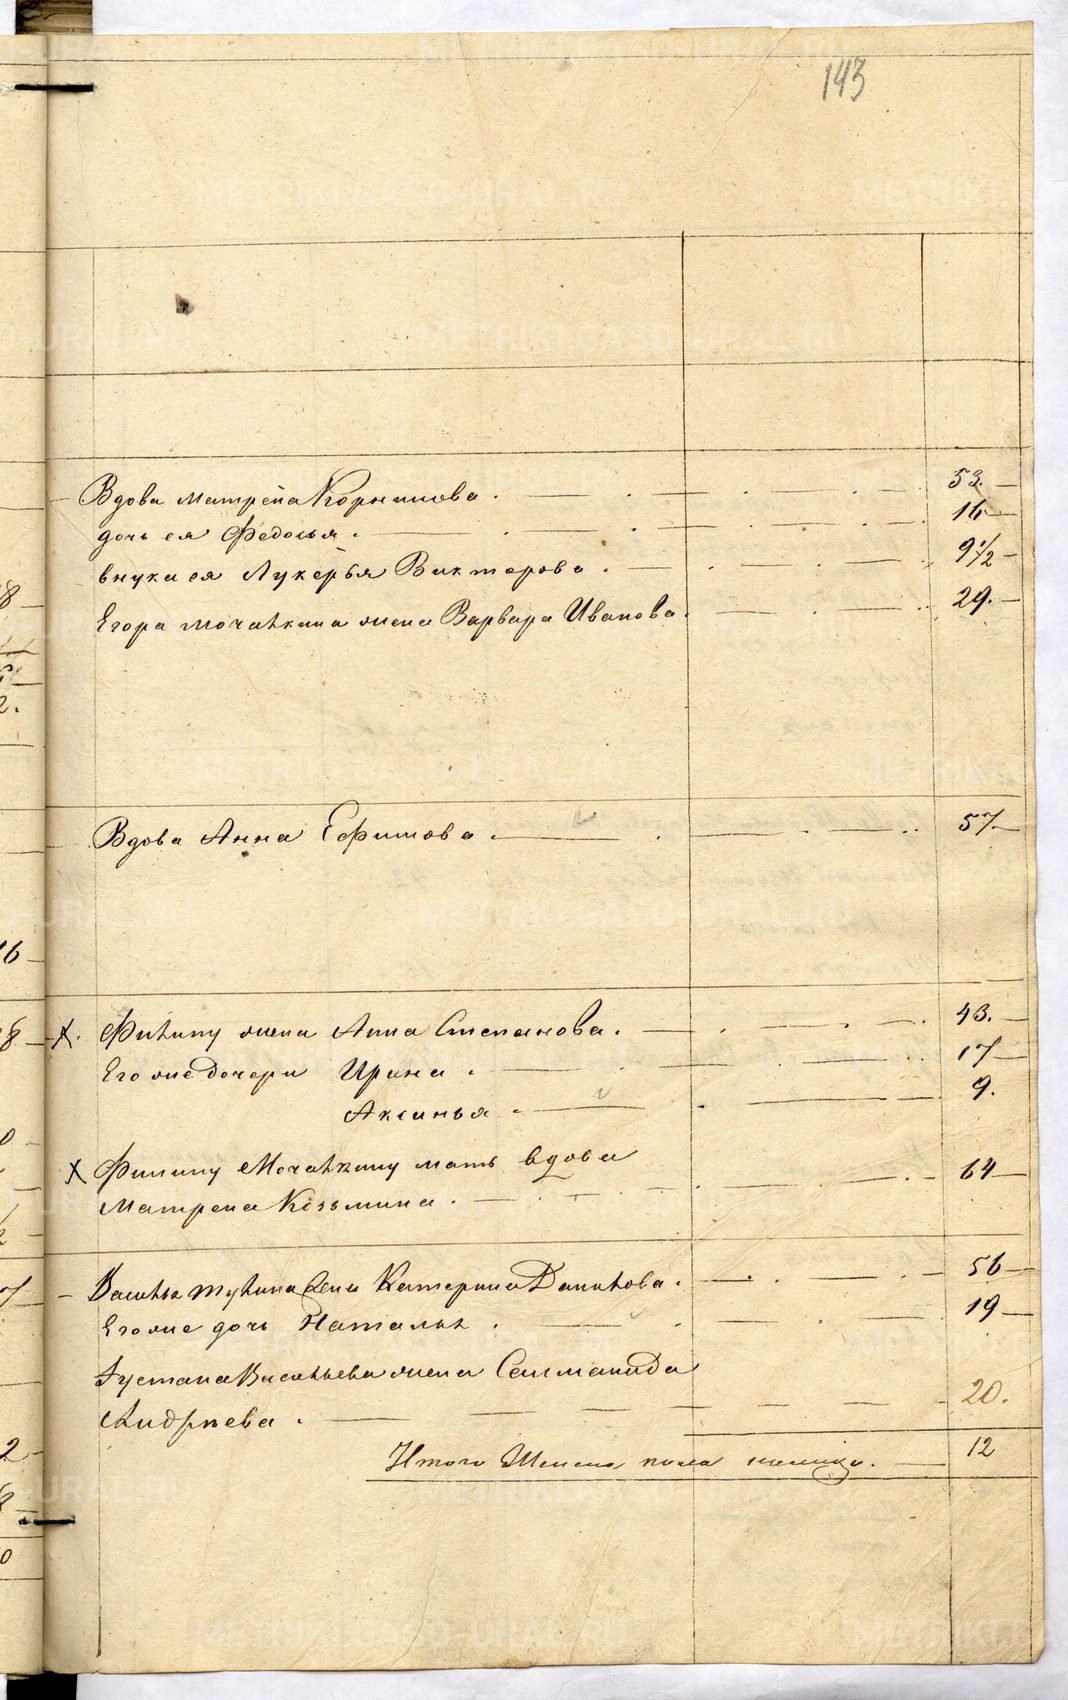 143
Вдова Матрена Корнилова. 53.
дочь ея Федосья. 16
внука ея Лукерья Викторова. 9 1/2
Егора Мочалкина жена Варвара Иванова. 29.
Вдова Анна Ефимова. 57
Х. Филипу жена Анна Степанова. 43.
Его же дочери Ирина. 17
Аксинья. 9.
Х Филипу Мочалкину мать вдова
Матрена Козьмина. 64
жена Катерина Данилова. 56
Его же дочь Наталья. 19
Васильева жена
Андреева. 20.
Итого Женска пола налицо. 12
8
2.
16
8
0
7
2
0